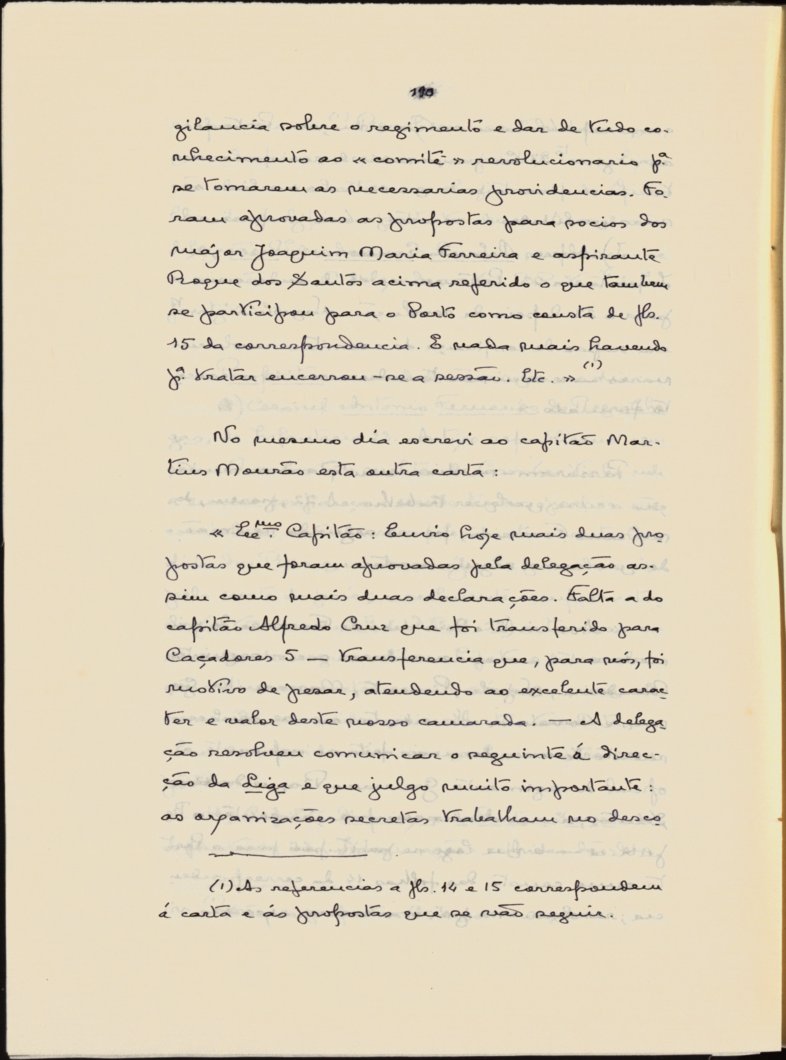 190
gilancia sobre o regimento e dar de tudo co-
nhecimento ao « comité » revolucionario p.ª
se tomarem as necessarias providencias. Fo-
ram aprovadas as propostas para socios dos
májor Joaquim Maria Ferreira e aspirante
Roque dos Santos acima referido o que tambem
se participou para o Porto como consta de fls.
15 da correspondencia. E nada mais havendo
p.ª tratar encerrou-se a sessão. Etc. » (1)
No mesmo dia escrevi ao capitão Mar-
tins Mourão esta outra carta :
« Eé.mo Capitão : Envio hoje mais duas pro
postas que foram aprovadas pela delegação as-
sim como mais duas declarações. Falta a do
capitão Alfredo Cruz que foi transferido para
Caçadores 5 — transferencia que, para nós, foi
motivo de pesar, atendendo ao excelente carac-
ter e valor deste nosso camarada. — A delega-
ção resolveu comunicar o seguinte á direc-
ção da Liga e que julgo muito importante :
as organizações secretas trabalham no desco-
(1) As referencias a fls. 14 e 15 correspondem
á carta e ás propostas que se vão seguir.